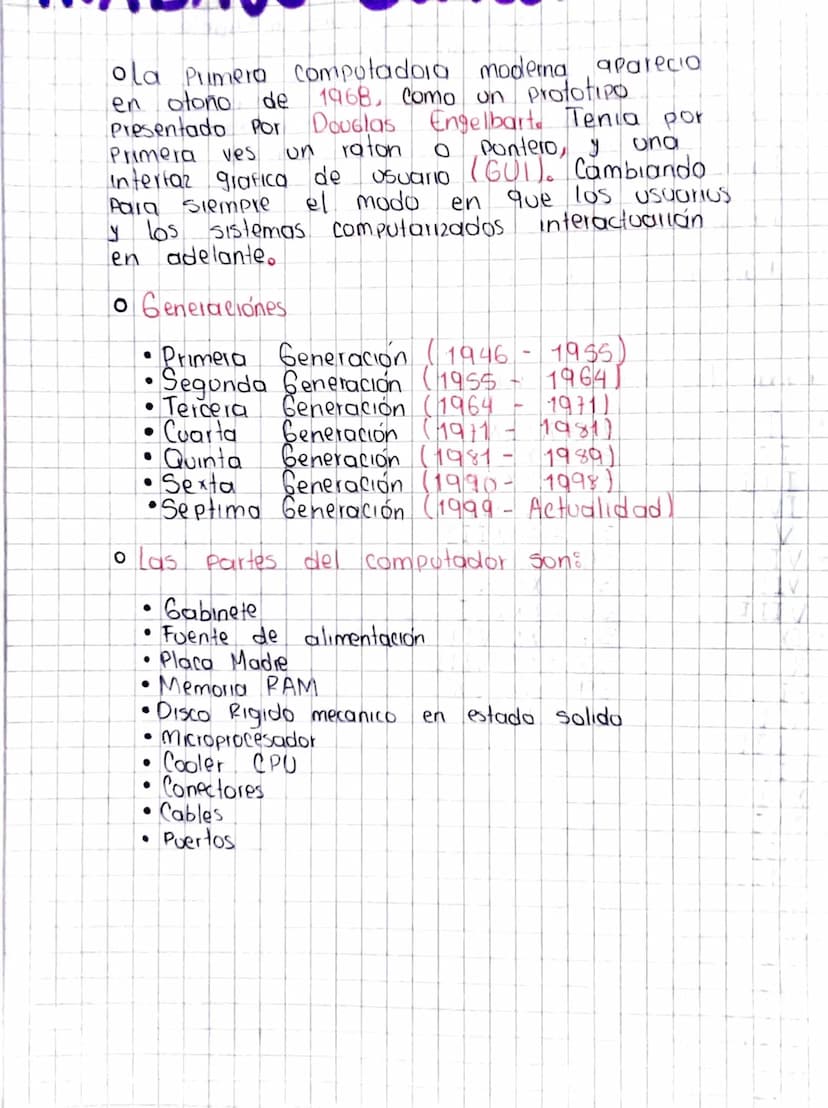 o La Primera computadora moderna aparecio
en otoño de 1968, como un prototipo
Presentado Por Douglas Engelbart. Tenia por
Primera ves un raton o puntero, y una
interfaz grafica de usuario (GUI). Cambiando
para siempre el modo en que los usuarios
y los sistemas computarizados interactuarían
en adelante.
o Generaciónes
• Primera Generación (1946 - 1955)
• Segunda Generación (1955 - 1964)
• Tercera Generación (1964 - 1971)
• Cuarta Generación (1971 - 1981)
• Quinta Generación (1981 - 1989)
• Sexta Generación (1990 - 1998)
• Septima Generación (1999 - Actualidad)
o Las partes del computador son:
• Gabinete
• Fuente de alimentación
• Placa Madre
• Memoria RAM
• Disco Rigido mecanico en estado solido
• Microprocesador
• Cooler CPU
• Conectores
• Cables
• Puertos